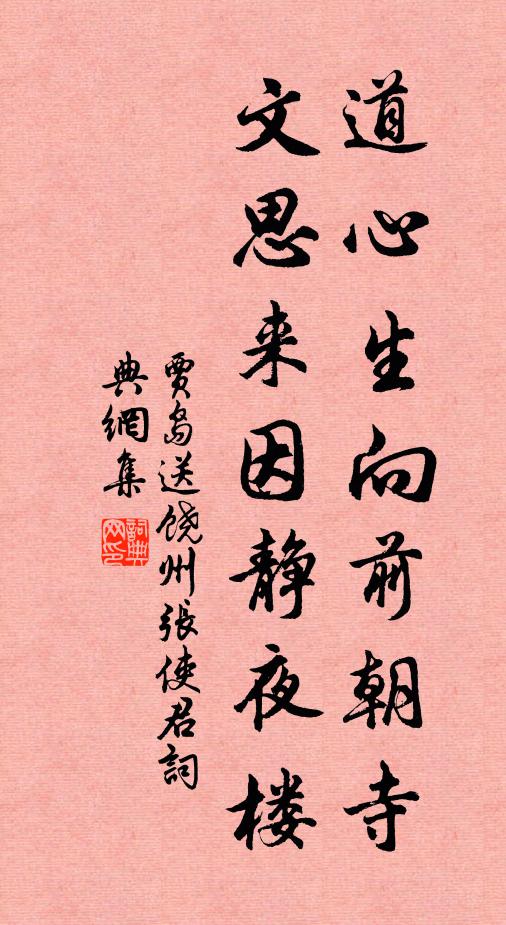 道心生向前朝寺
文思来因静夜楼
賈島送饶州張使君詞
典網集
詞典
网印